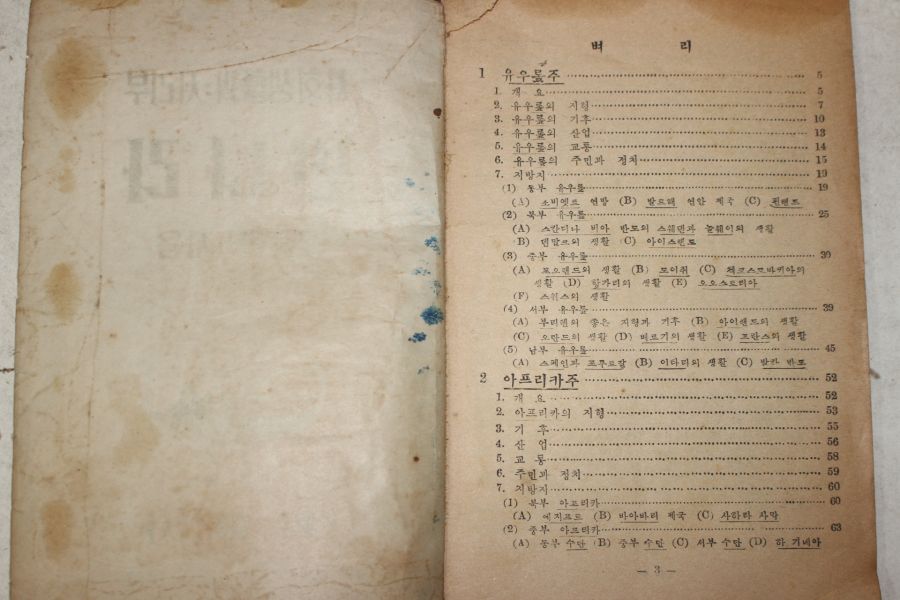 벼 리
1 유우롶주 5
1. 개 요 5
2. 유우롶의 지형 7
3. 유우롶의 기후 10
4. 유우롶의 산업 13
5. 유우롶의 교통 14
6. 유우롶의 주민과 정치 15
7. 지방지 19
(1) 동부 유우롶 19
(A) 소비엣트 연방 (B) 발으해 연안 제국 (C) 핀랜드
(2) 북부 유우롶 25
(A) 스칸디나 비아 반도의 스웨덴과 놀웨이의 생활
B) 덴말크의 생활 C) 아이스랜드
(3) 중부 유우롶 30
(A) 포오랜드의 생활 (B) 도이취 (C) 체코스로바키아의
생활 (D) 항가리의 생활 (E) 오오스트리아
(F) 스위스의 생활
(4) 서부 유우롶 39
(A) 부리텐의 좋은 지형과 기후 (B) 아이랜드의 생활
(C) 오란드의 생활 (D) 베르기의 생활 (E) 프란스의 생활
(5) 남부 유우롶 45
(A) 스페인과 포루투갈 (B) 이타리의 생활 (C) 발칸 반도
2 아프리카주 52
1. 개 요 52
2. 아프리카의 지형 53
3. 기 후 55
4. 산 업 56
5. 교 통 58
6. 주민과 정치 59
7. 지방지 60
(1) 북부 아프리카 60
(A) 에지프트 (B) 바아바리 제국 (C) 사하라 사막
(2) 중부 아프리카 63
(A) 동부 수단 (B) 중부 수단 (C) 서부 수단 (D) 하 기네아
— 3 —